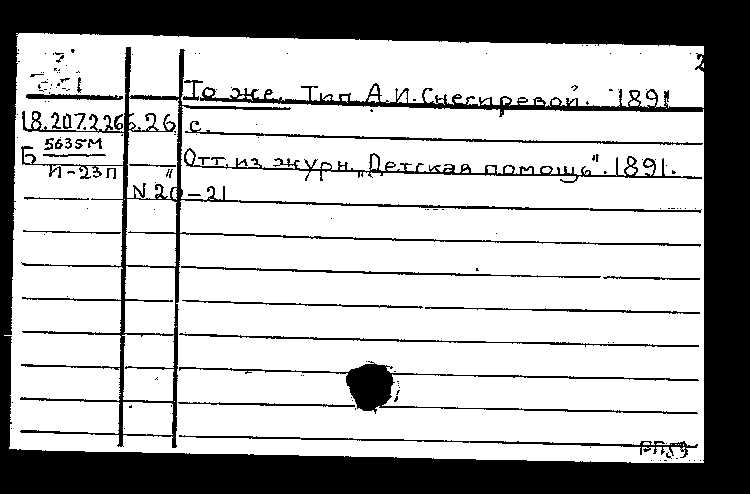 2
То же. Тип А.И.Снегиревой. 1891
18.207.2.266. 26 с.
Б 5635М Отт. из журн. „Детская помощь". 1891.
И-23П
N 20-21